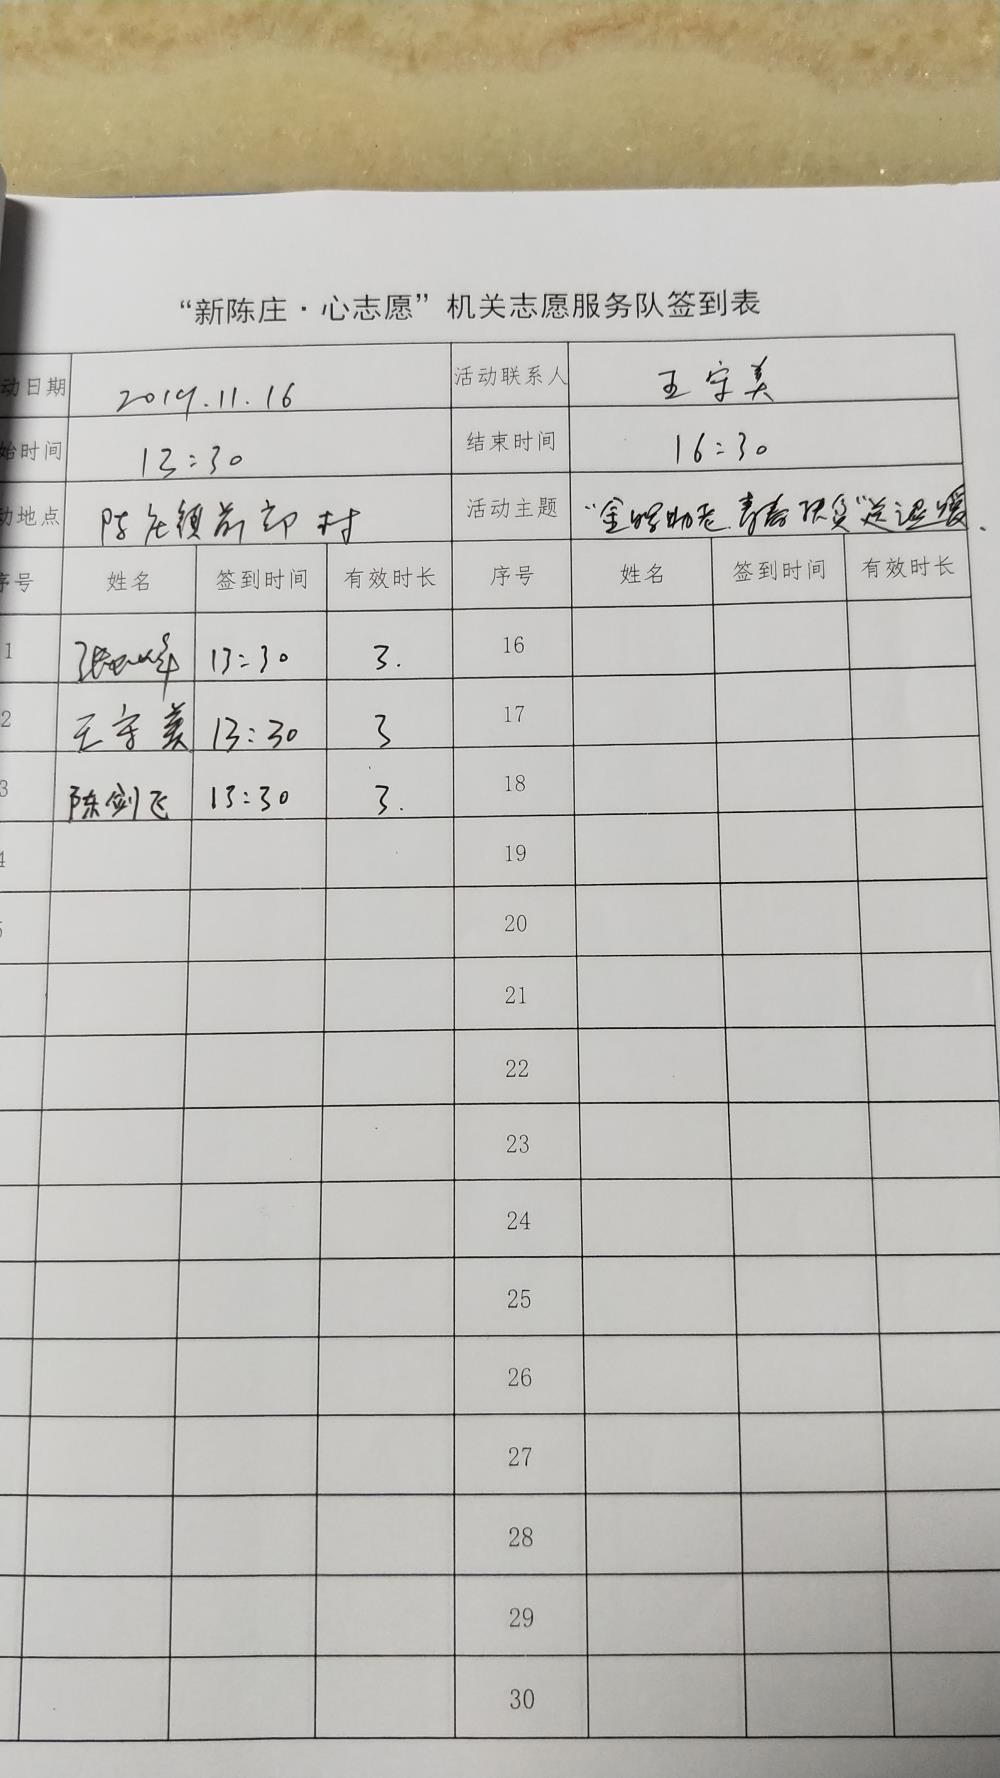 “新陈庄·心志愿”机关志愿服务队签到表
动日期 2019.11.16 活动联系人 王守美
始时间 13:30 结束时间 16:30
动地点 陈庄镇前郭村 活动主题 “金晖助老 青春扶贫”送温暖.
序号 姓名 签到时间 有效时长 序号 姓名 签到时间 有效时长
1 13:30 3. 16
2 王守美 13:30 3 17
3 陈剑飞 13:30 3. 18
4 19
5 20
21
22
23
24
25
26
27
28
29
30